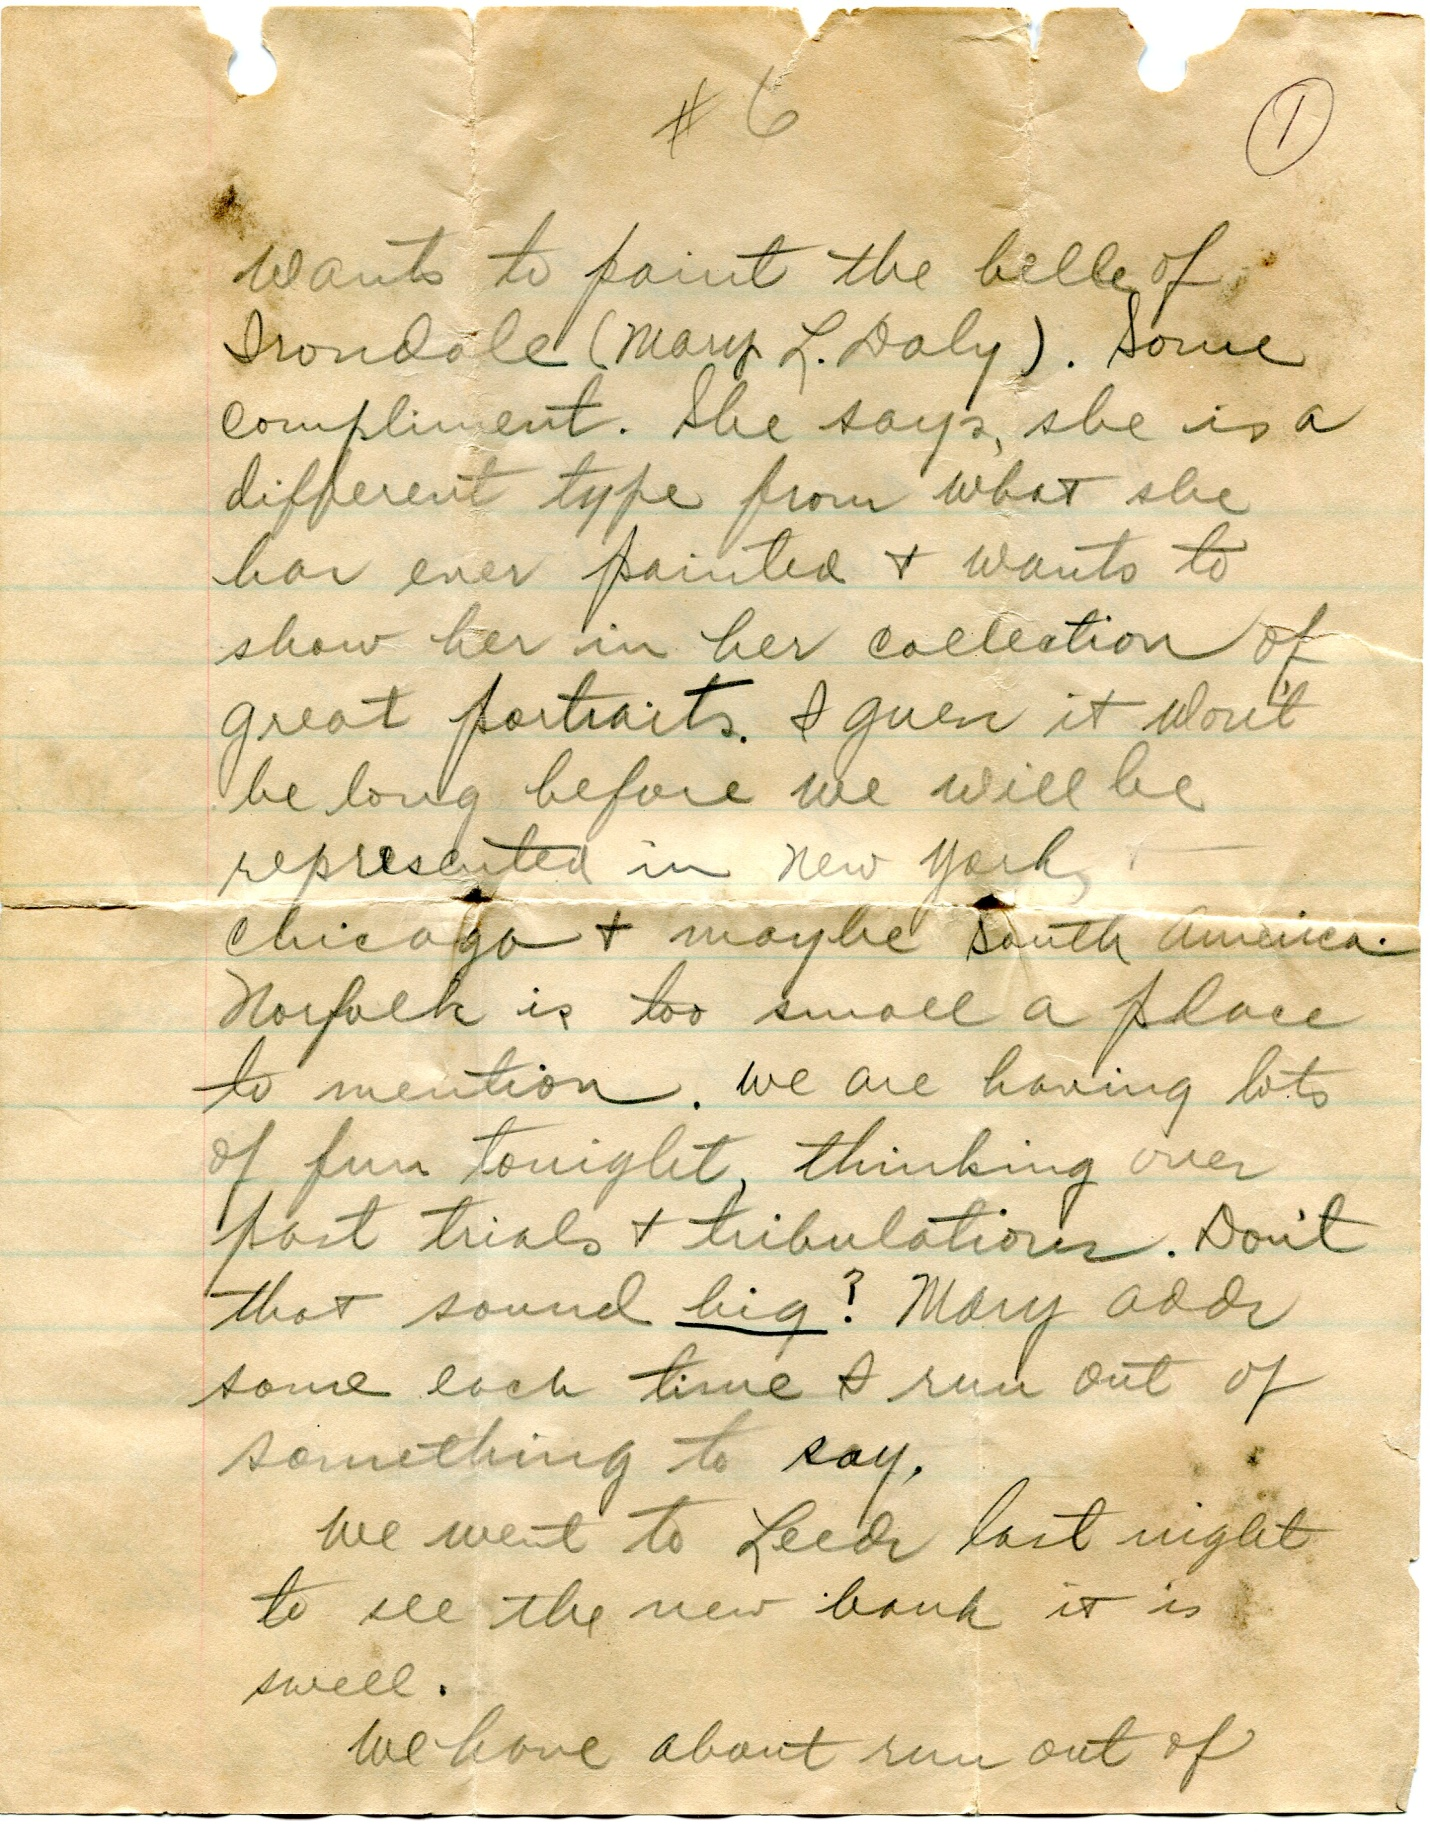 # 6
1
Wants to paint the belle of
Irondale (Mary L. Daly). Some
compliment. She says, she is a
different type from what she
has ever painted + wants to
show her in her collection of
great portraits. I guess it won't
be long before we will be
represented in New York,
Chicago + maybe South America.
Norfolk is too small a place
to mention. We are having lots
of fun tonight, thinking over
past trials + tribulations. Don't
that sound big? Mary adds
some each time I run out of
something to say.
We went to Leeds last night
to see the new bank it is
swell.
We have about run out of